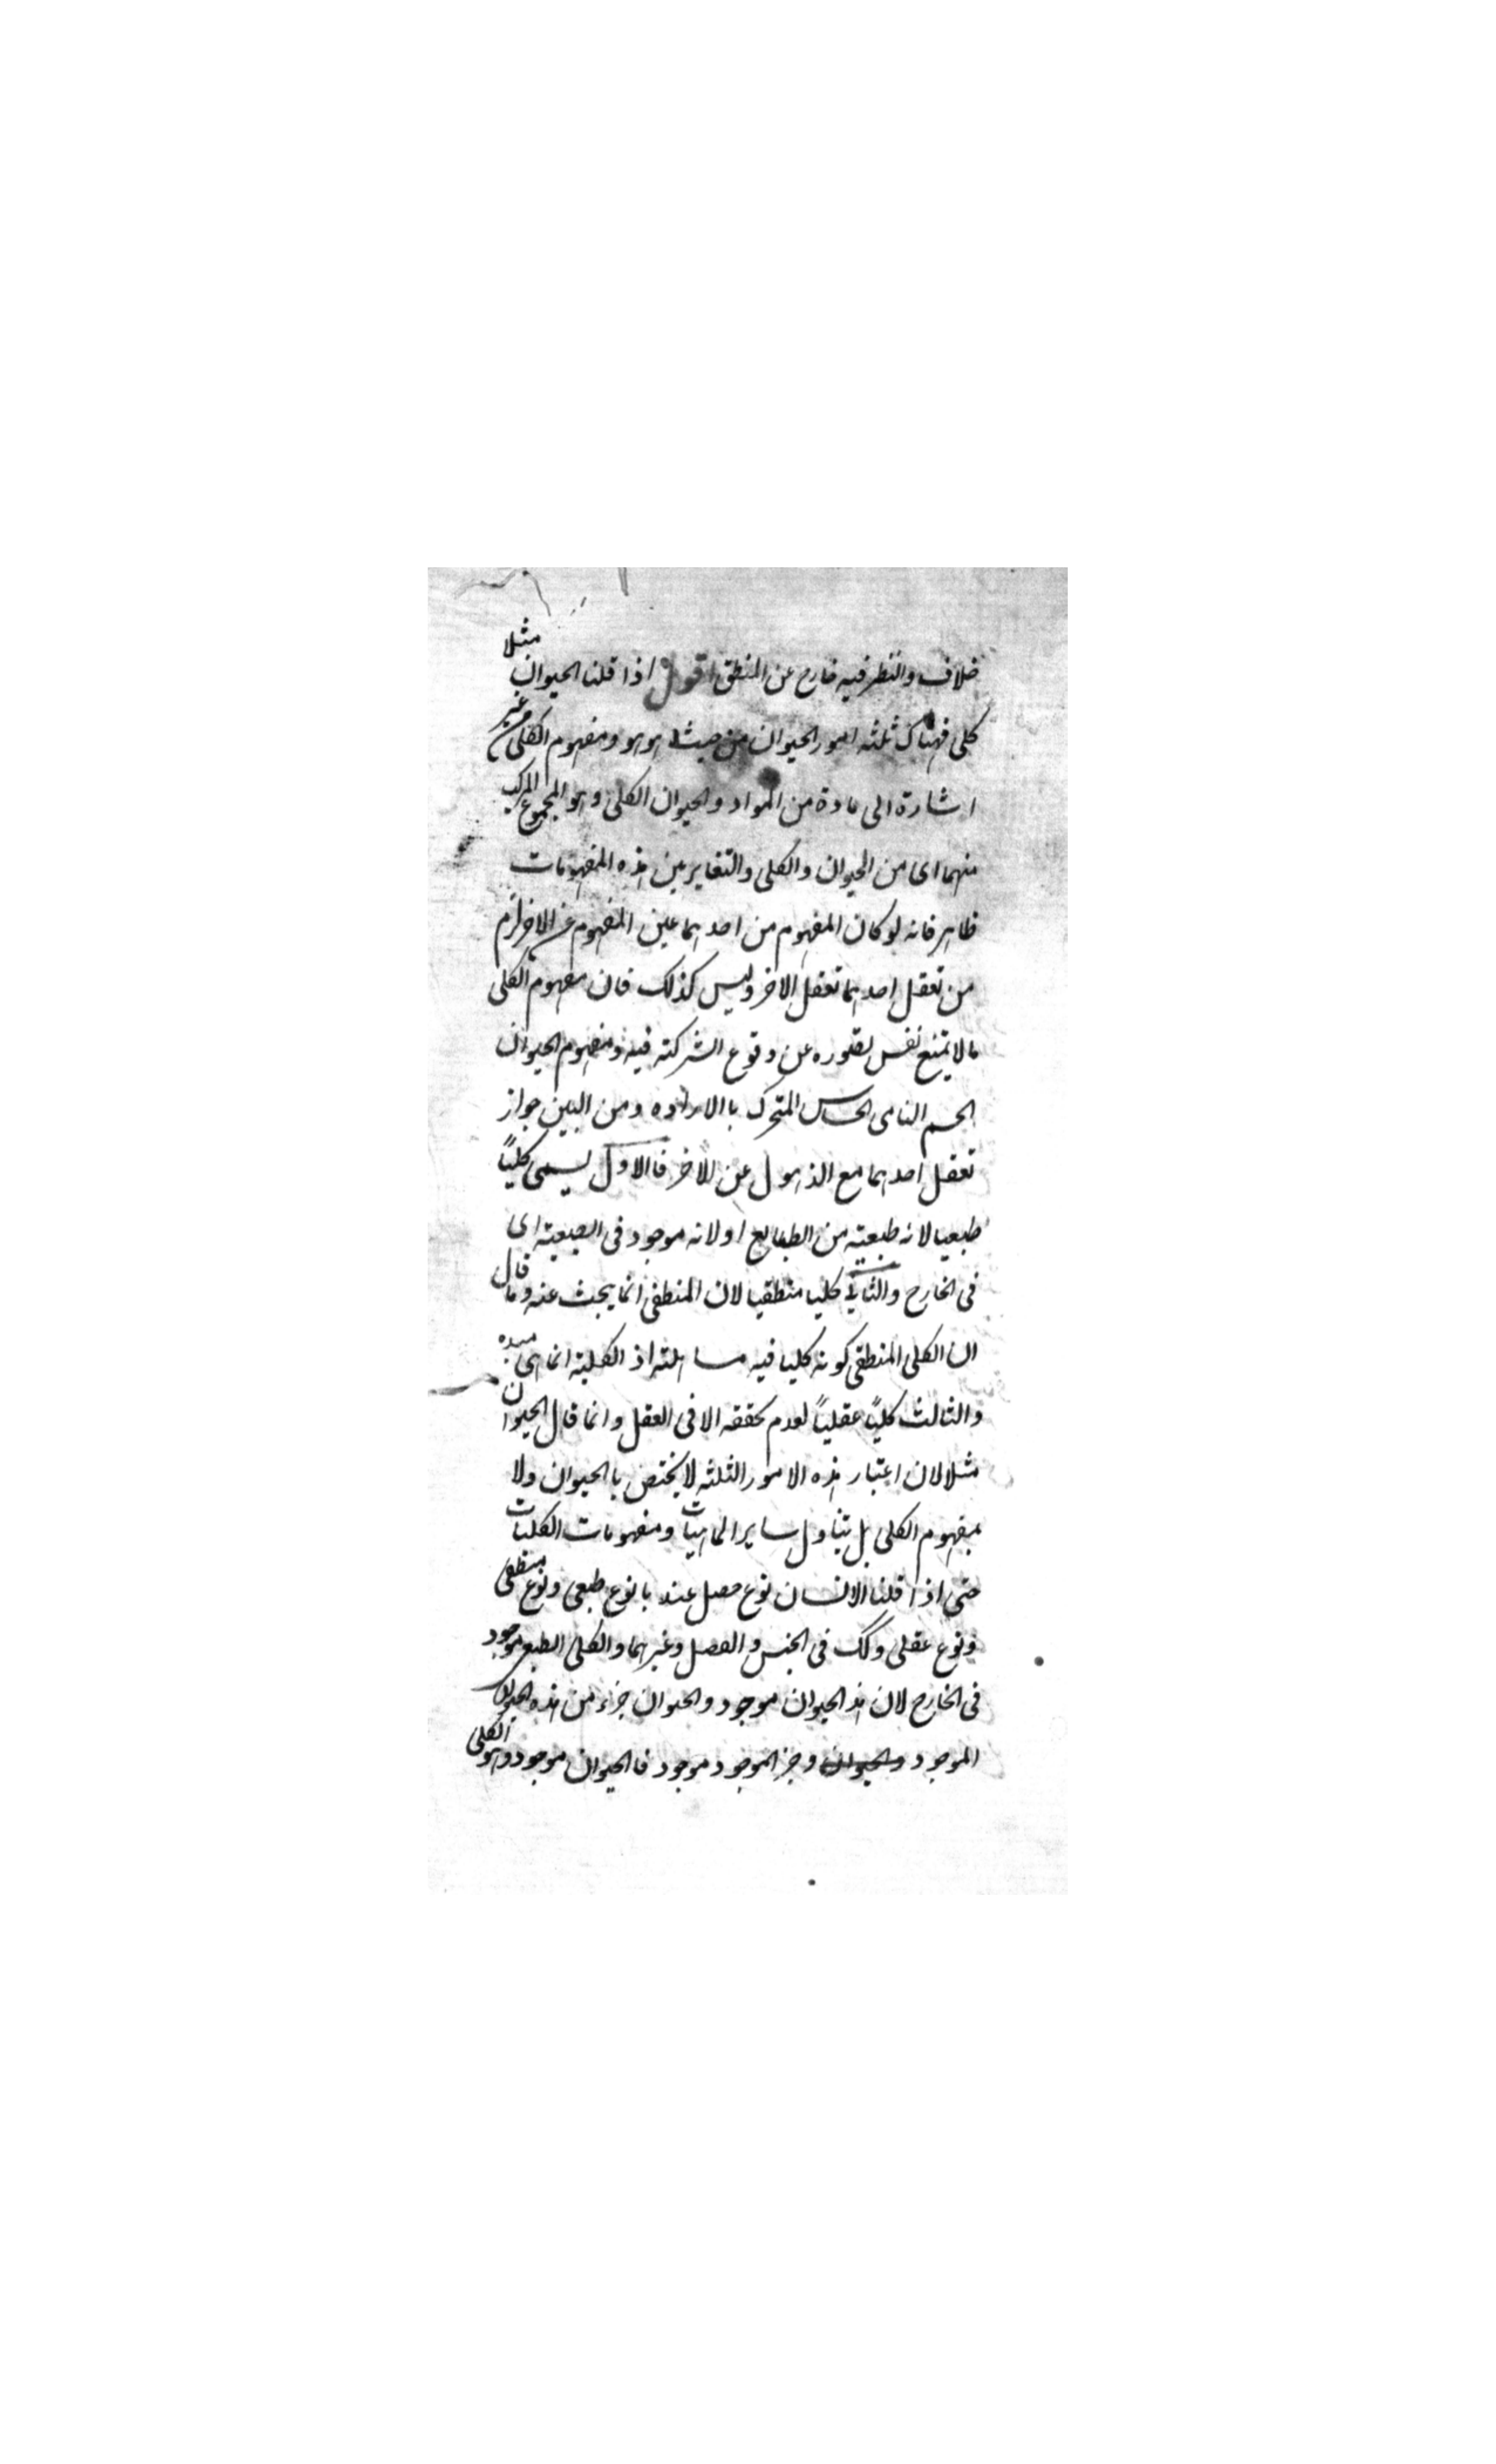 خلاف والنظر فيه خارج عن المنطق اقول اذا قلنا الحيوان مثلا
كلى فهناك ثلثه امور الحيوان من حيث هو هو ومفهوم الكلى من غير
اشارة الى مادة من المواد والحيوان الكلى وهو المجموع المركب
منهما اى من الحيوان والكلى والتغاير بين هذه المفهومات
ظاهر فانه لو كان المفهوم من احدهما عين المفهوم من الاخر لزم
من تعقل احدهما تعقل الاخر وليس كذلك فان مفهوم الكلى
ما لا يمنع نفس تصوره عن وقوع الشركته فيه ومفهوم الحيوان
الجسم النامى الحساس المتحرك باالاراده ومن البين جواز
تعقل احدهما مع الذهول عن الاخر فاالاول يسمى كليًا
طبعيا لانه طبعيته من الطبايع او لانه موجود فى الطبعيته اى
فى الخارج والثانى كليا منطقيا لان المنطقى انما يبحث عنه وما قال
ان الكلى المنطقى كونه كليا فيه مساهلته اذ الكليته انما هى مبدء
والثالث كليًا عقليًا لعدم تحققه الا فى العقل وانما قال الحيوان
مثلا لان اعتبار هذه الامور الثلثه لا يختص باالحيوان ولا
بمفهوم الكلى بل يتناول ساير الماهيات ومفهومات الكليات
حتى اذا قلنا الانسان نوع حصل عندنا نوع طبعى ونوع منطقى
ونوع عقلى وكك فى الجنس والفصل وغيرهما والكلى الطبعى موجود
فى الخارج لان هذ الحيوان موجود والحيوان جزء من هذه الحيوان
الموجود والحيوان وجز الموجود موجود فاالحيوان موجود وهو الكلى